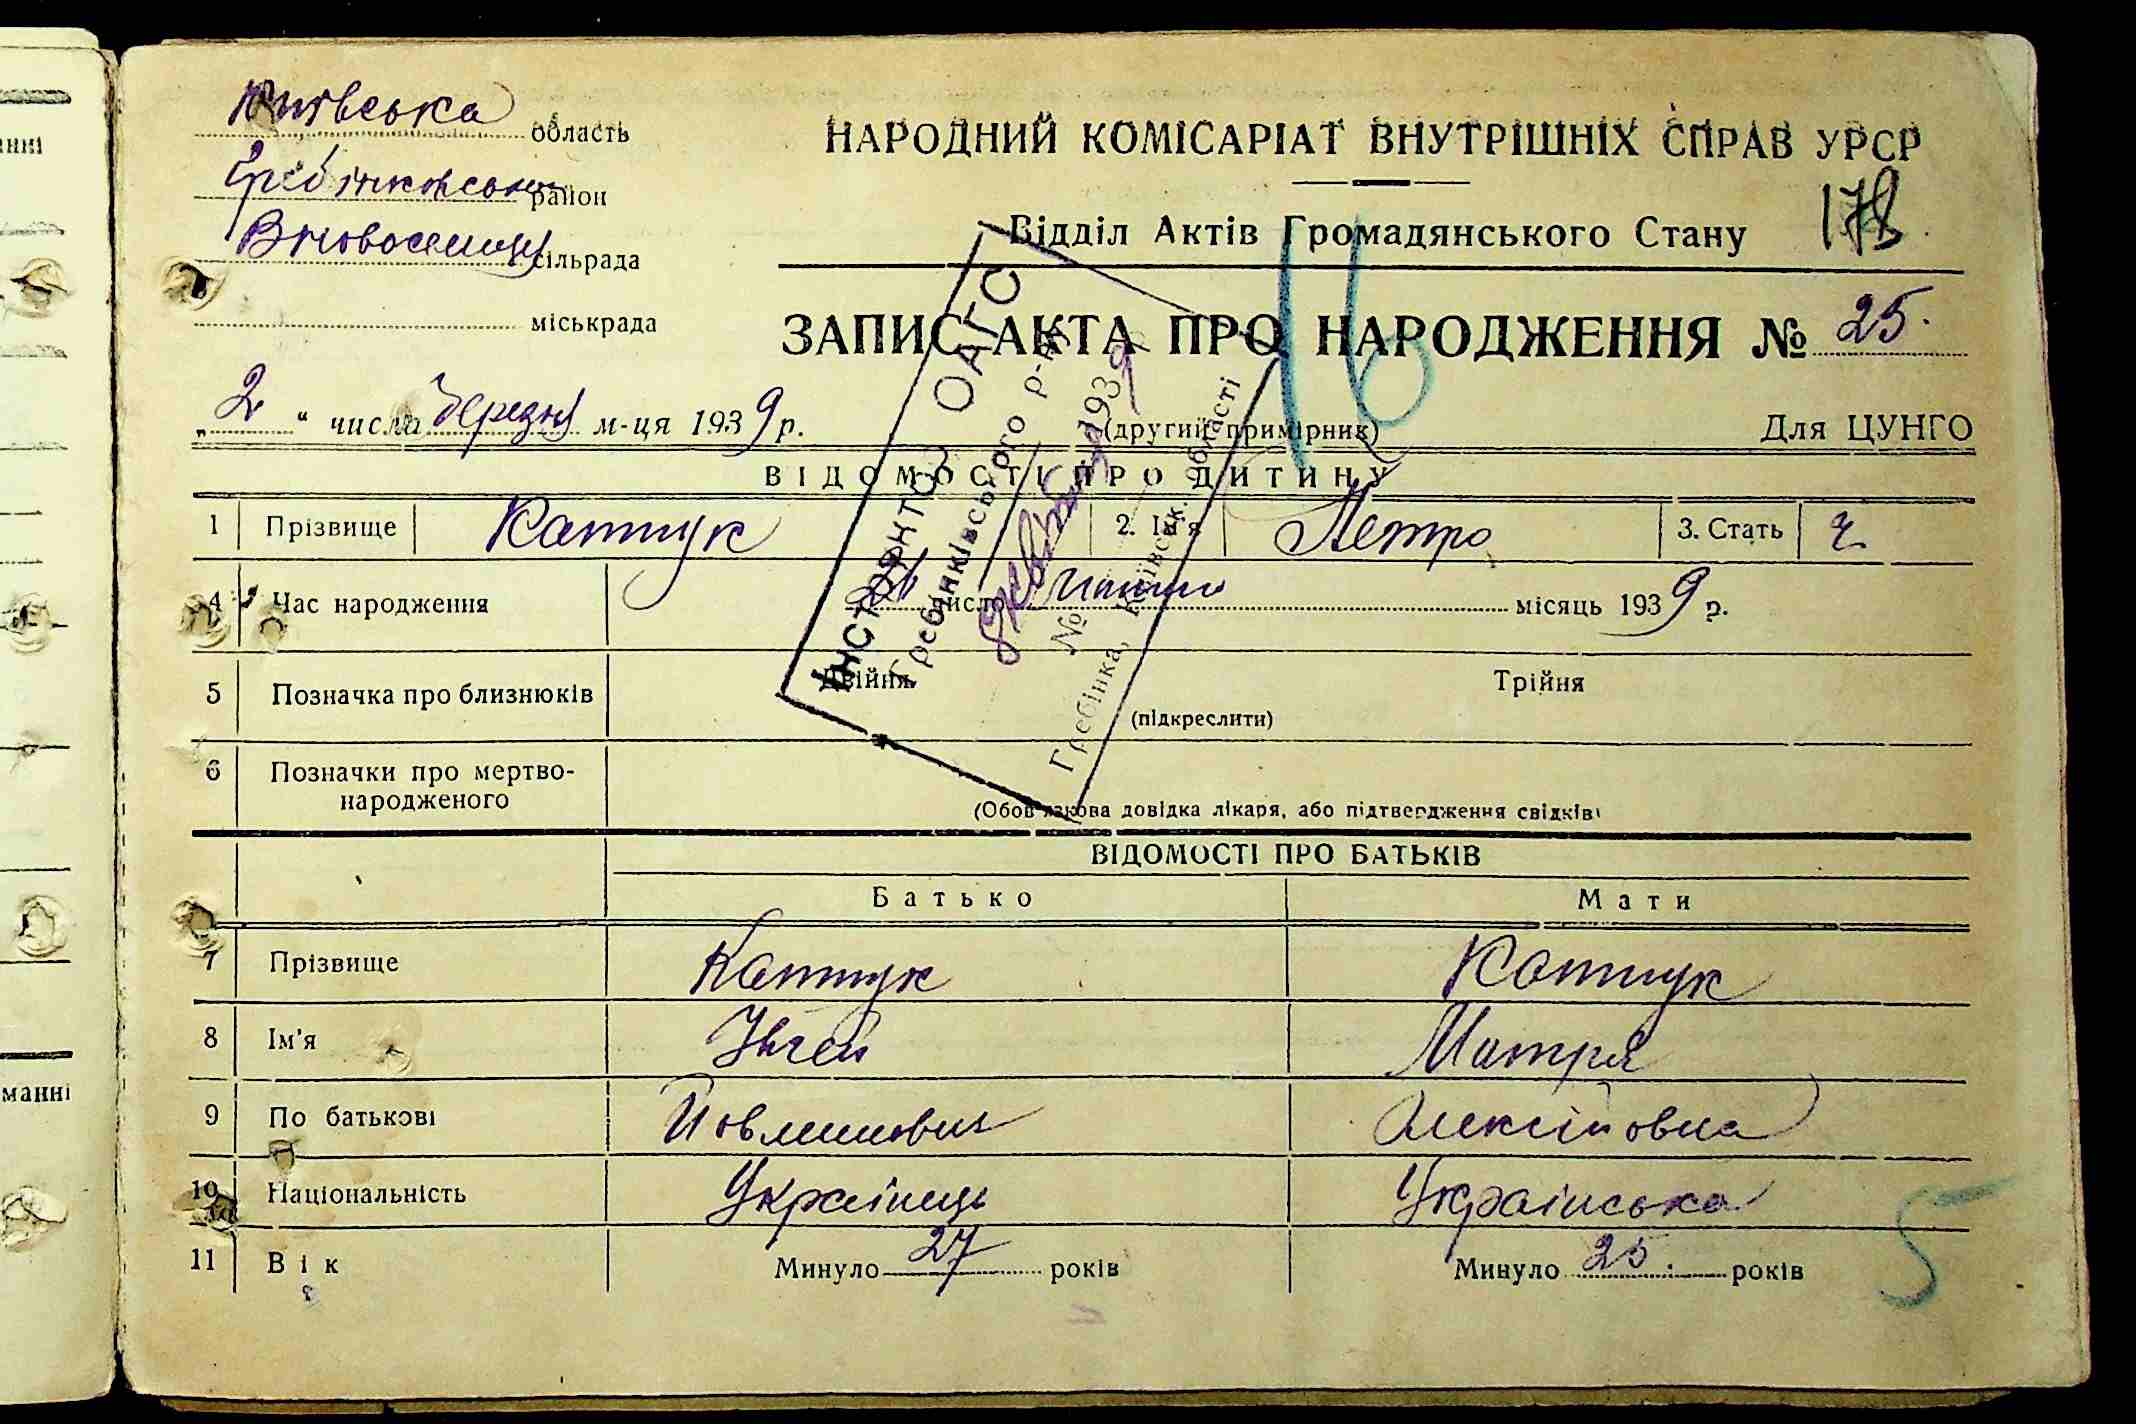 нні
манні
Київська область
Гребінківський район
сільрада
міськрада
НАРОДНИЙ КОМІСАРІАТ ВНУТРІШНІХ СПРАВ УРСР
Відділ Актів Громадянського Стану 178
ЗАПИС АКТА ПРО НАРОДЖЕННЯ № 25.
16
„2“ числа березня м-ця 1939 р.
(другий примірник)
Для ЦУНГО
Інспектор ОАГС
Гребінківського р-ну
№
1939
Гребінка, Київськ. області
ВІДОМОСТІ ПРО ДИТИНУ
1 Прізвище 2. Ім'я Петро 3. Стать ч
4 Час народження число місяць 1939 р.
5 Позначка про близнюків Двійня Трійня
(підкреслити)
6 Позначки про мертво-
народженого
(Обов'язкова довідка лікаря, або підтвердження свідків)
ВІДОМОСТІ ПРО БАТЬКІВ
Батько Мати
7 Прізвище
8 Ім'я
9 По батькові Олексіївна
10 Національність Українець Українська
11 Вік Минуло 27 років Минуло 25. років
5